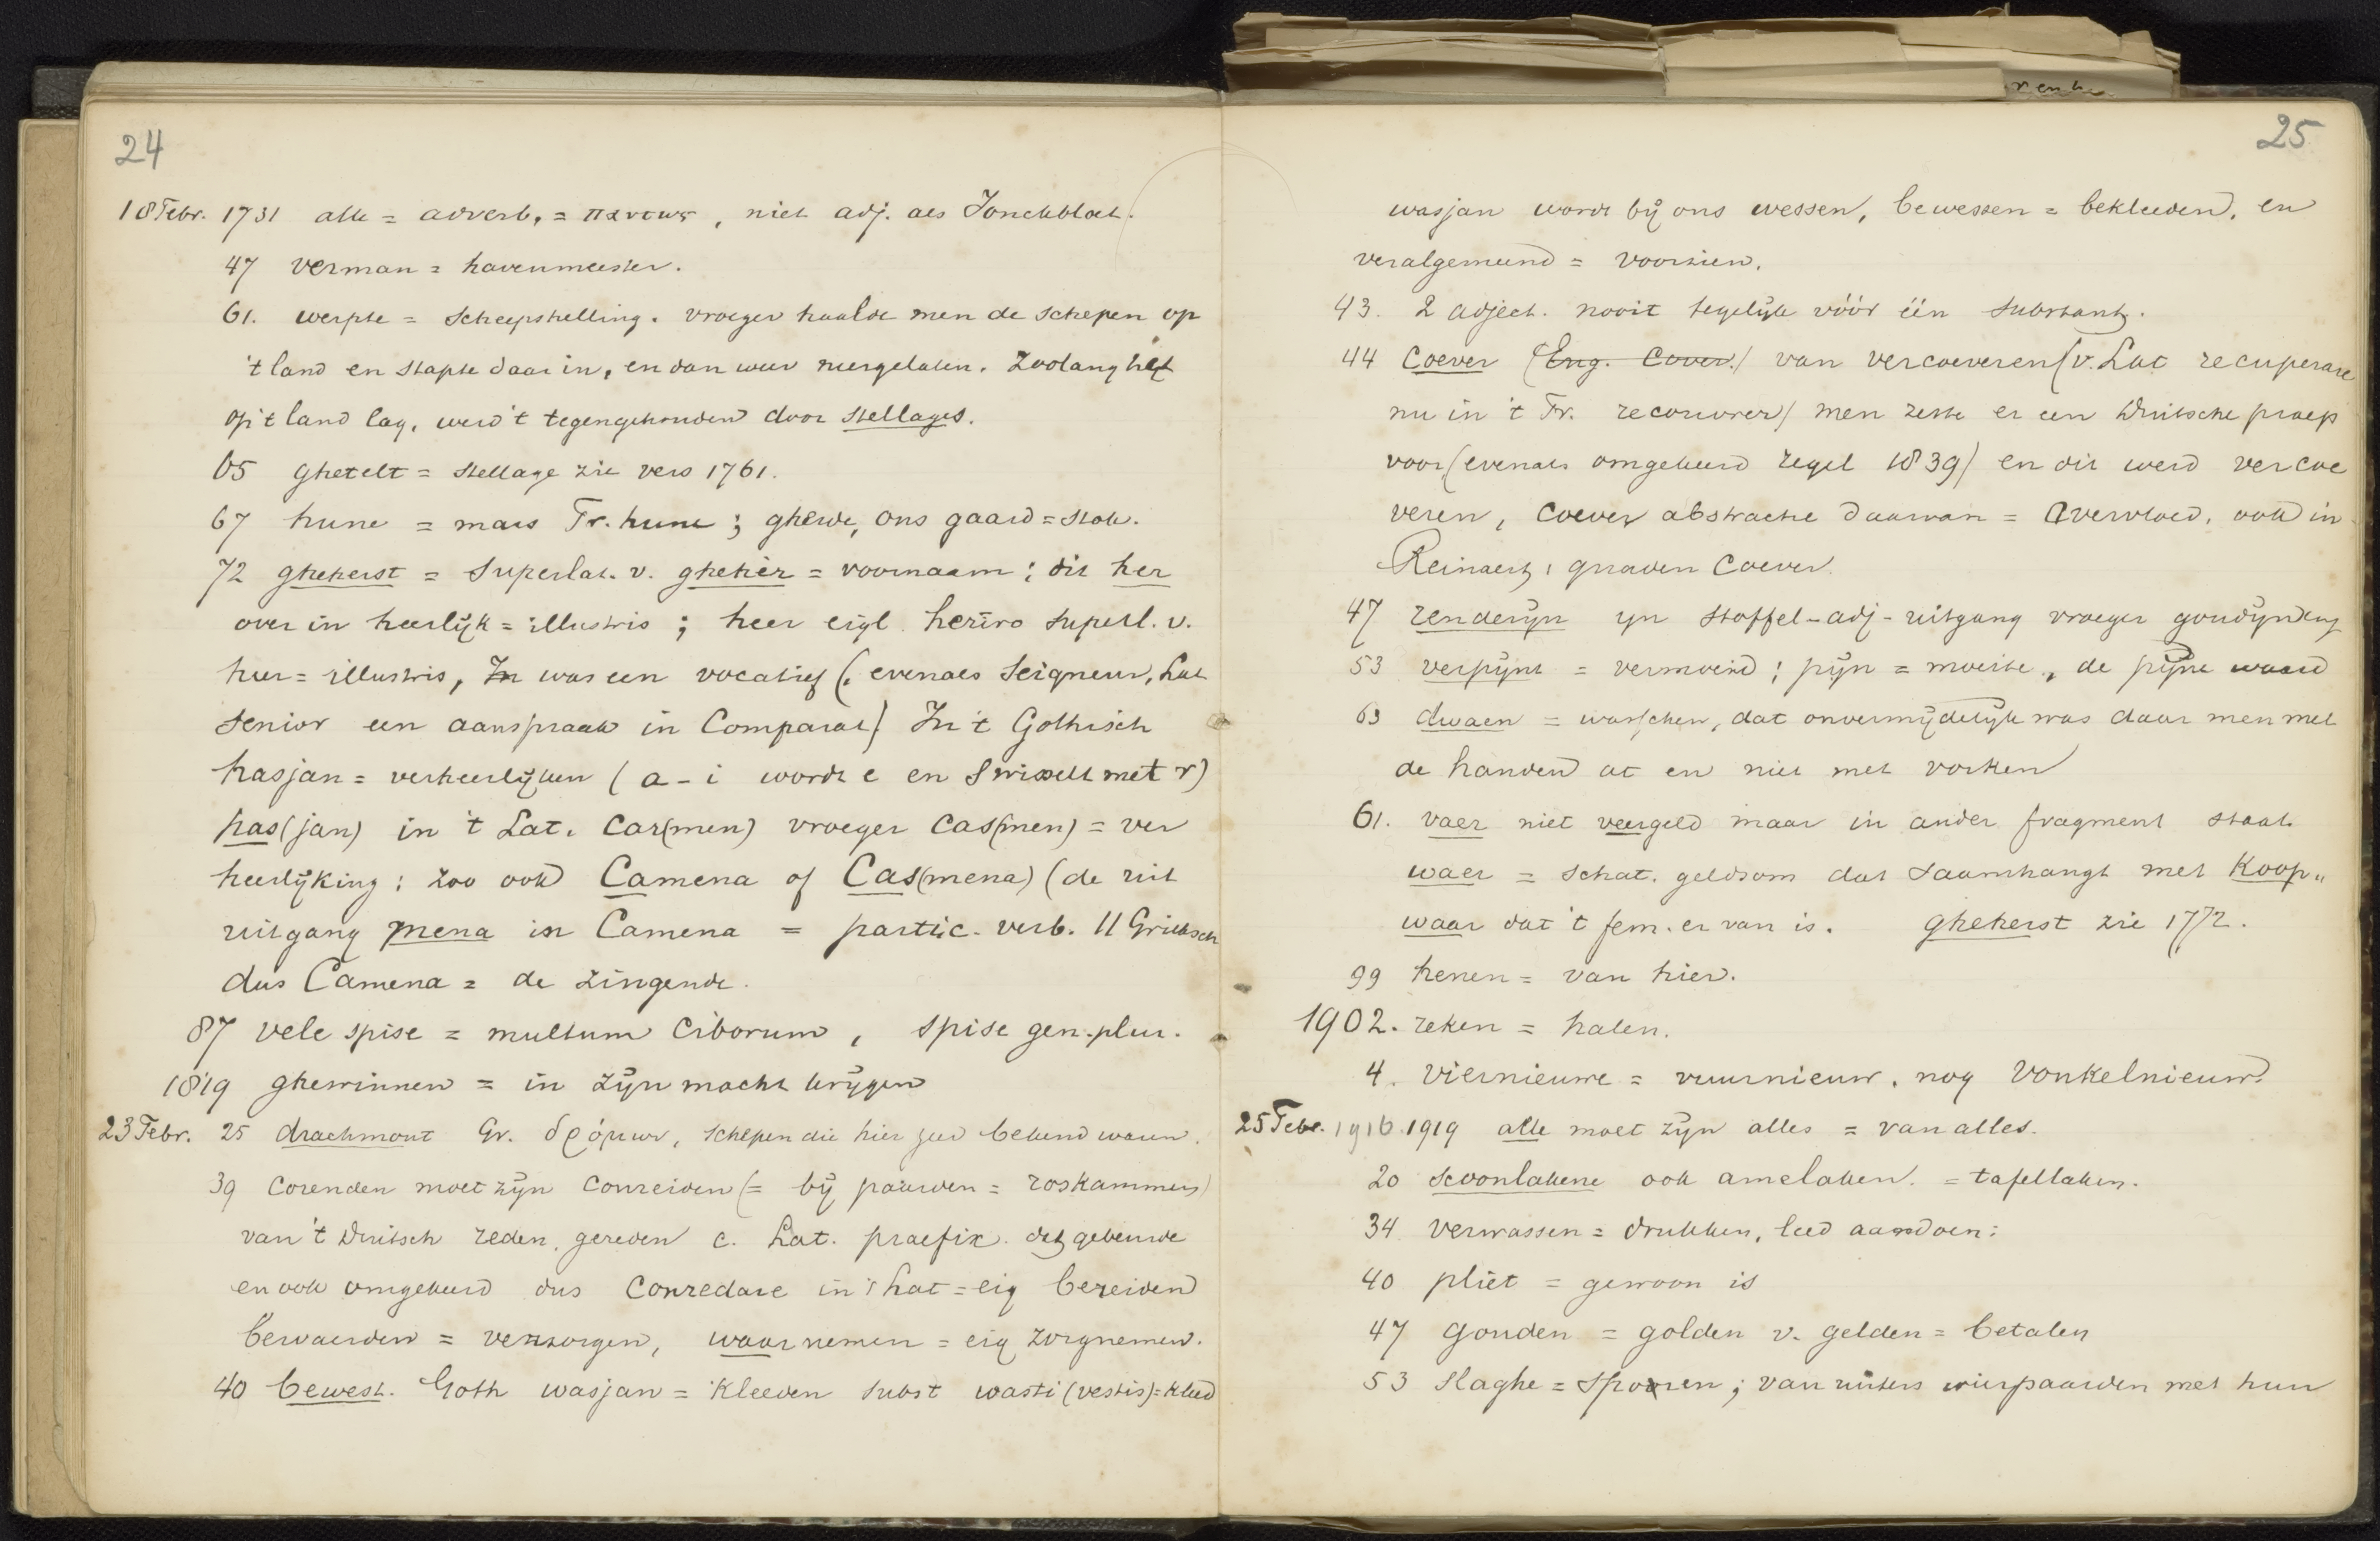 24
18 Febr. 1731 alle = adverb. = παντως, niet adj. als Jonckbloet.
47 verman = havenmeester.
61. werpte = scheepshelling. vroeger haalde men de schepen op
't land en stapte daar in, en dan weer neergelaten. Zoolang het
op 't land lag, werd 't tegengehouden door stellages.
65 ghetelt = stellage zie vers 1761.
67 hune = mars Fr. hune ; gherde, ons gaard = stok.
72 gheherst = Superlat. v. gheher = voornaam ; dit her
over in heerlijk = illustris ; heer eigl. heriro superl. v.
heer = illustris, In was een vocatief (evenals Seigneur, Lat
senior een aanspraak in Comparat) In 't Gothisch
hasjan = verheerlijken (a - i wordt e en s wisselt met r)
has(jan) in 't Lat. Car(men) vroeger Cas(men) = ver
heerlijking ; zoo ook Camena of Cas(mena) (de uit
uitgang mena in Camena = partic. verb. 11 Grieksch
dus Camena = de zingende.
87 vele spise = multum ciborum, spise gen. plur.
1819 ghewinnen = in zijn macht krijgen
23 Febr. 25 drachmont Gr. δρόμων, schepen die hier zeer bekend waren.
39 corenden moet zijn conreiden (= bij paarden = roskammen)
van 't Duitsch reden, gereden c. Lat. praefix dat gebeurde
en ook omgekeerd dus Conredare in 't Lat = eig bereiden
bewaerden = verzorgen, waarnemen = eig zorgnemen.
40 bewest. Goth wasjan = kleeden subst wasti (vestis) = kleed
25
wasjan wordt bij ons wessen, bewessen = bekleeden, en
veralgemeend = voorzien.
43. 2 adject. nooit tegelijk vóór één substant.
44 Coever (Eng. Cover.) van vercoeveren (v. Lat recuperare
nu in 't Fr. recouvrer) men zette er een Duitsche praep
voor (evenals omgekeerd regel 1839) en dit werd vercoe
veren, Coever abstracte daarvan = Overvloed, ook in
Reinaert, graven Coever.
47 renderijn yn stoffel-adj-uitgang vroeger goudijn enz
53 verpijnt = vermoeid ; pijn = moeite, de pijne waard
63 dwaen = wasschen, dat onvermijdelijk was daar men met
de handen at en niet met vorken
61. vaer niet veergeld maar in ander fragment staat
waer = schat. geldsom dat saamhangt met Koop„
waar dat 't fem. er van is. gheherst zie 1772.
99 henen = van hier.
1902. reken = halen.
4. viernieuwe = vuurnieuw. nog vonkelnieuw.
25 Febr. 1916. 1919 alle moet zijn alles = van alles.
20 scoonlakene ook amelaken. = tafellaken.
34 verwassen = drukken, leed aandoen :
40 pliet = gewoon is
47 gouden = golden v. gelden = betalen
53 slaghe = sporen ; van ruiters wier paarden met hun